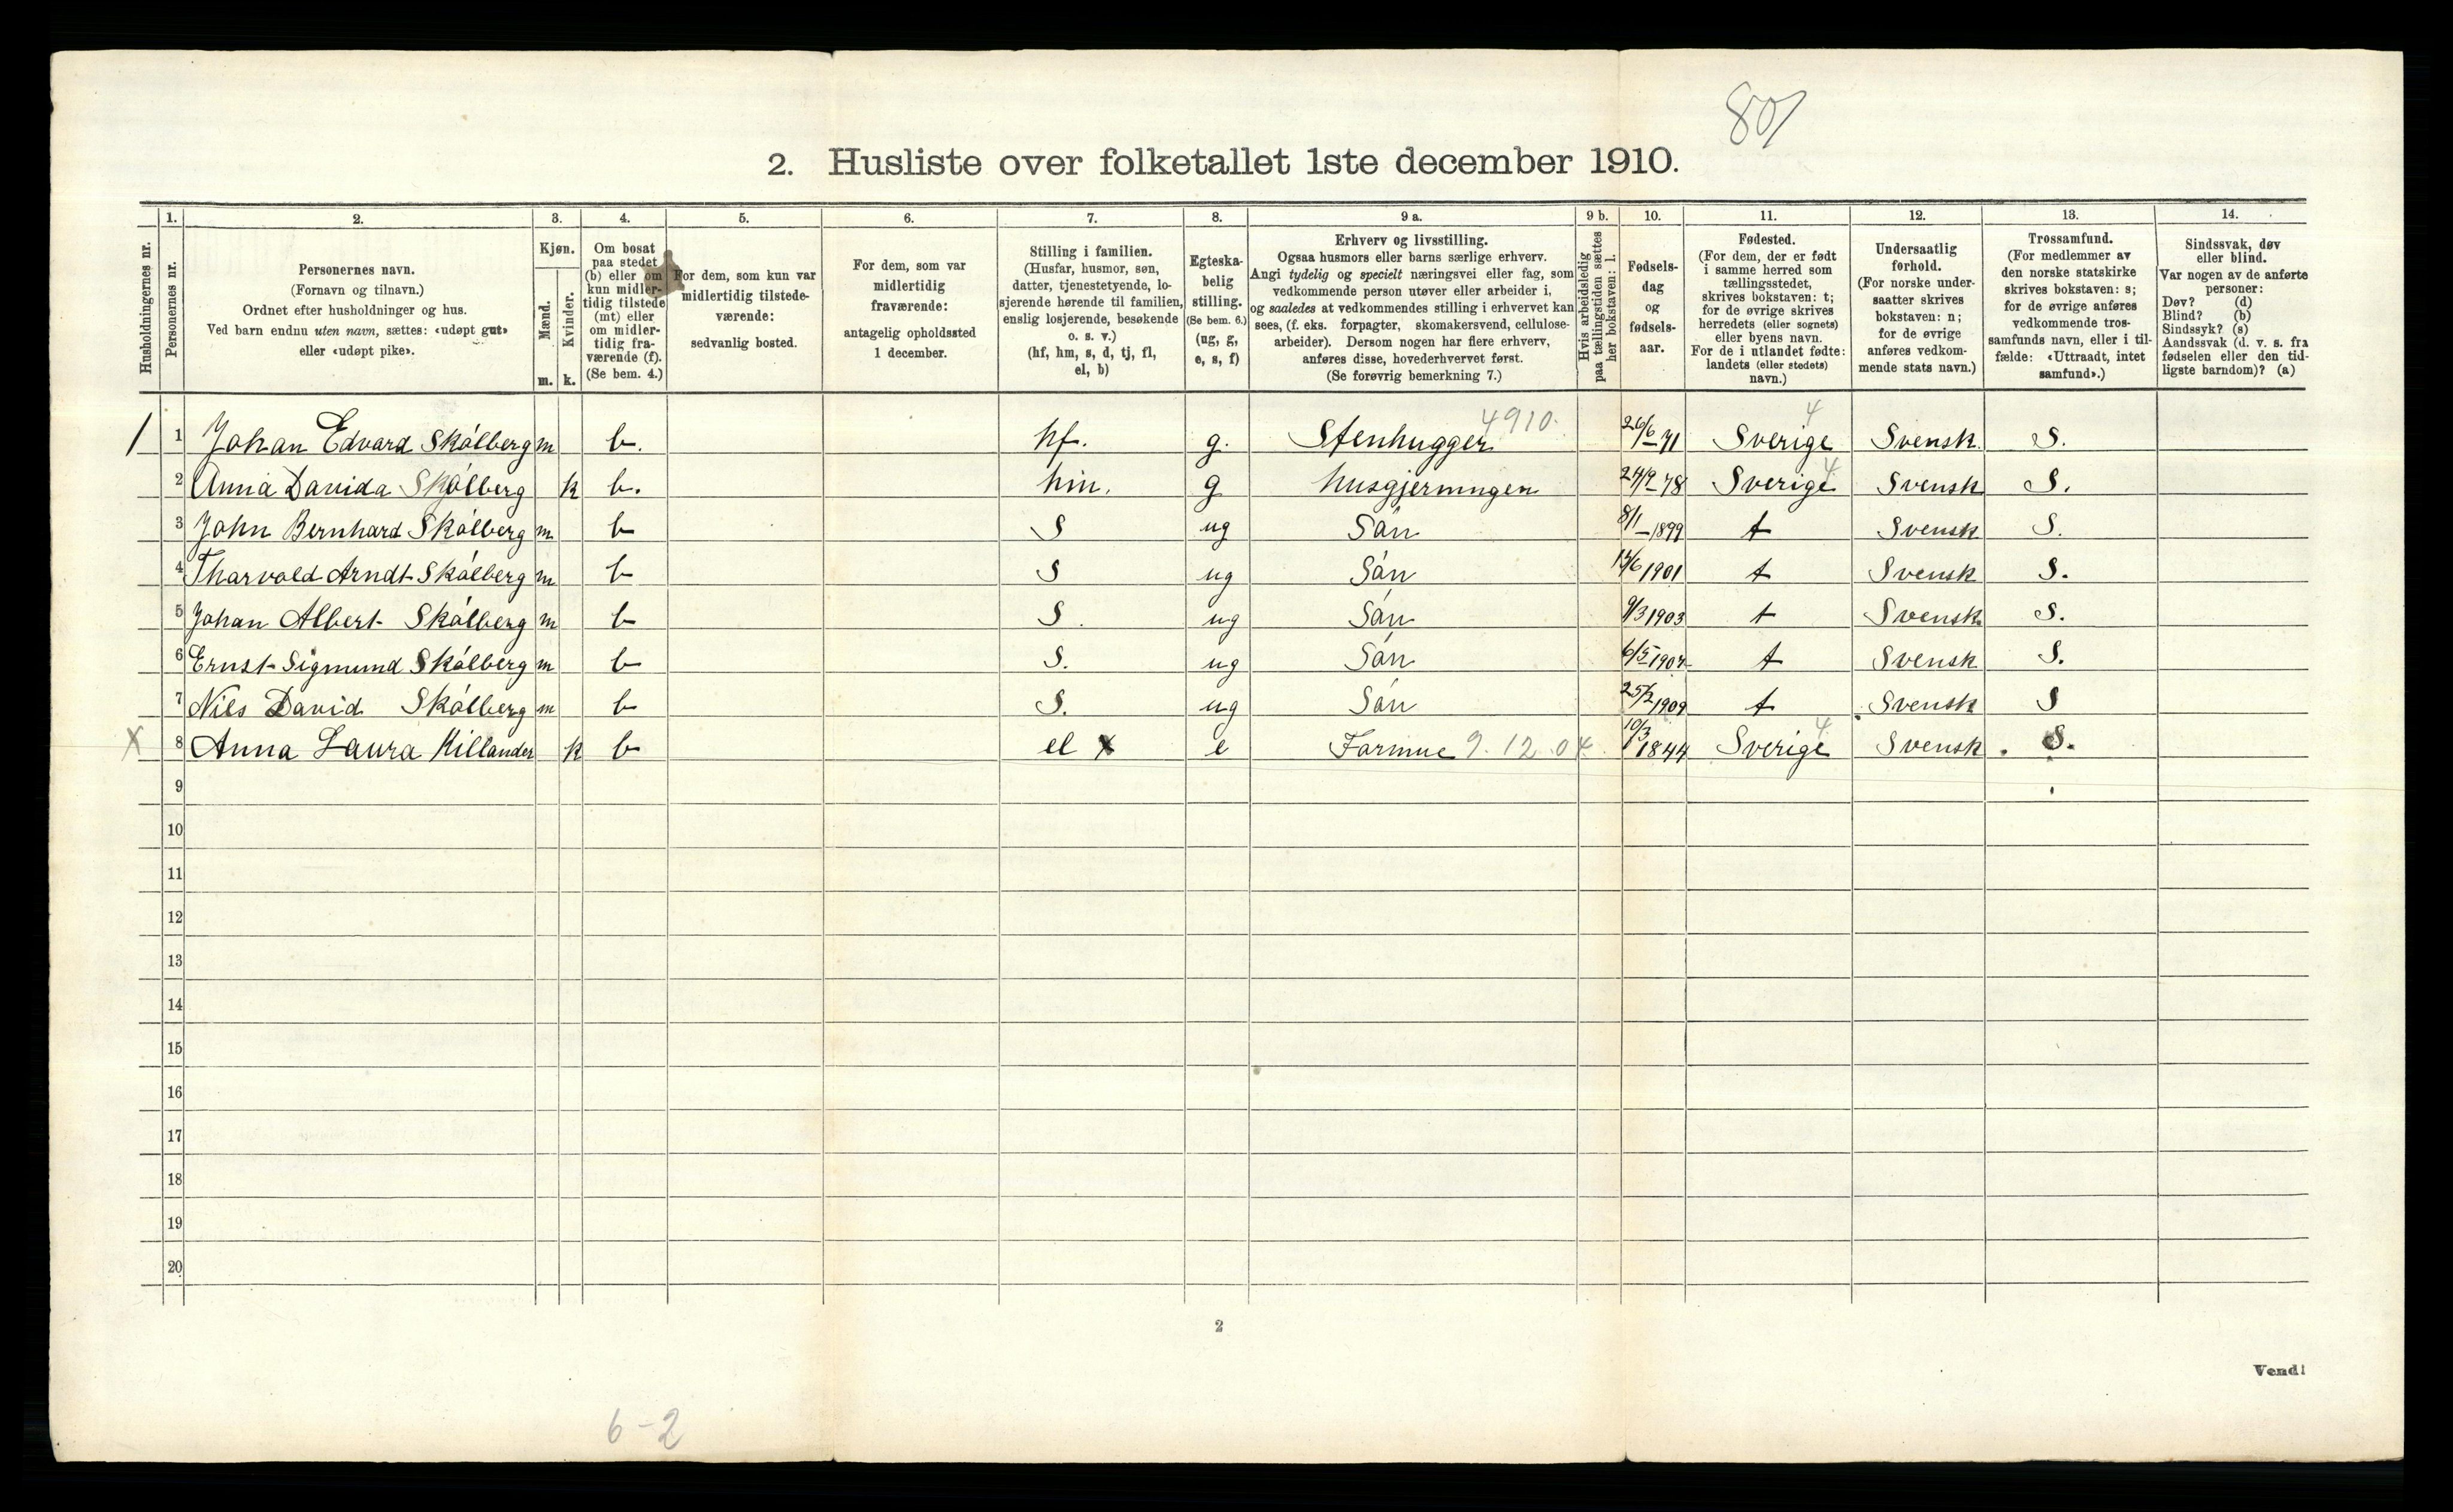 80/
2. Husliste over folketallet 1ste december 1910.
Husholdningernes nr.
1. Personernes nr.
2. Personernes navn.
(Fornavn og tilnavn.)
Ordnet efter husholdninger og hus.
Ved barn endnu uten navn, sættes: «udøpt gut»
eller «udøpt pike».
3. Kjøn.
Mænd. m.
Kvinder. k.
4. Om bosat
paa stedet
(b) eller om
kun midler-
tidig tilstede
(mt) eller
om midler-
tidig fra-
værende (f).
(Se bem. 4.)
5. For dem, som kun var
midlertidig tilstede-
værende:
sedvanlig bosted.
6. For dem, som var
midlertidig
fraværende:
antagelig opholdssted
1 december.
7. Stilling i familien.
(Husfar, husmor, søn,
datter, tjenestetyende, lo-
sjerende hørende til familien,
enslig losjerende, besøkende
o. s. v.)
(hf, hm, s, d, tj, fl,
el, b)
8. Egteska-
belig
stilling.
(Se bem. 6.)
(ug, g,
e, s, f)
9 a. Erhverv og livsstilling.
Ogsaa husmors eller barns særlige erhverv.
Angi tydelig og specielt næringsvei eller fag, som
vedkommende person utøver eller arbeider i,
og saaledes at vedkommendes stilling i erhvervet kan
sees, (f. eks. forpagter, skomakersvend, cellulose-
arbeider). Dersom nogen har flere erhverv,
anføres disse, hovederhvervet først.
(Se forøvrig bemerkning 7.)
9 b. Hvis arbeidsledig
paa tællingstiden sættes
her bokstaven: l.
10. Fødsels-
dag
og
fødsels-
aar.
11. Fødested.
(For dem, der er født
i samme herred som
tællingsstedet,
skrives bokstaven: t;
for de øvrige skrives
herredets (eller sognets)
eller byens navn.
For de i utlandet fødte:
landets (eller stedets)
navn.)
12. Undersaatlig
forhold.
(For norske under-
saatter skrives
bokstaven: n;
for de øvrige
anføres vedkom-
mende stats navn.)
13. Trossamfund.
(For medlemmer av
den norske statskirke
skrives bokstaven: s;
for de øvrige anføres
vedkommende tros-
samfunds navn, eller i til-
fælde: «Uttraadt, intet
samfund».)
14. Sindssvak, døv
eller blind.
Var nogen av de anførte
personer:
Døv? (d)
Blind? (b)
Sindssyk? (s)
Aandssvak (d. v. s. fra
fødselen eller den tid-
ligste barndom)? (a)
1 1 Johan Edvard Skálberg m b. hf. g. Stenhugger 4910. 26/6-71 Sverige 4 Svensk S.
2 Anna Davida Skálberg k b. hm. g husgjerningen 24/9-78 Sverige 4 Svensk S.
3 John Bernhard Skálberg m b S ug Sán 8/1-1899 t Svensk S.
4 Tharvald Arndt Skálberg m b S ug Sán 1901 t Svensk S.
5 Johan Albert Skálberg m b S. ug Sán 9/3 1903 t Svensk S.
6 Ernst Sigmund Skálberg m b S. ug Sán 6/5 1907 t Svensk S.
7 Nils David Skálberg m b S. ug Sán 25/2 1909 t Svensk S
X 8 Anna Laura Killander k b el x e 9.12.04. 10/3 1844 Sverige 4 Svensk. S.
9
10
11
12
13
14
15
16
17
18
19
20
2
Vend!
6-2